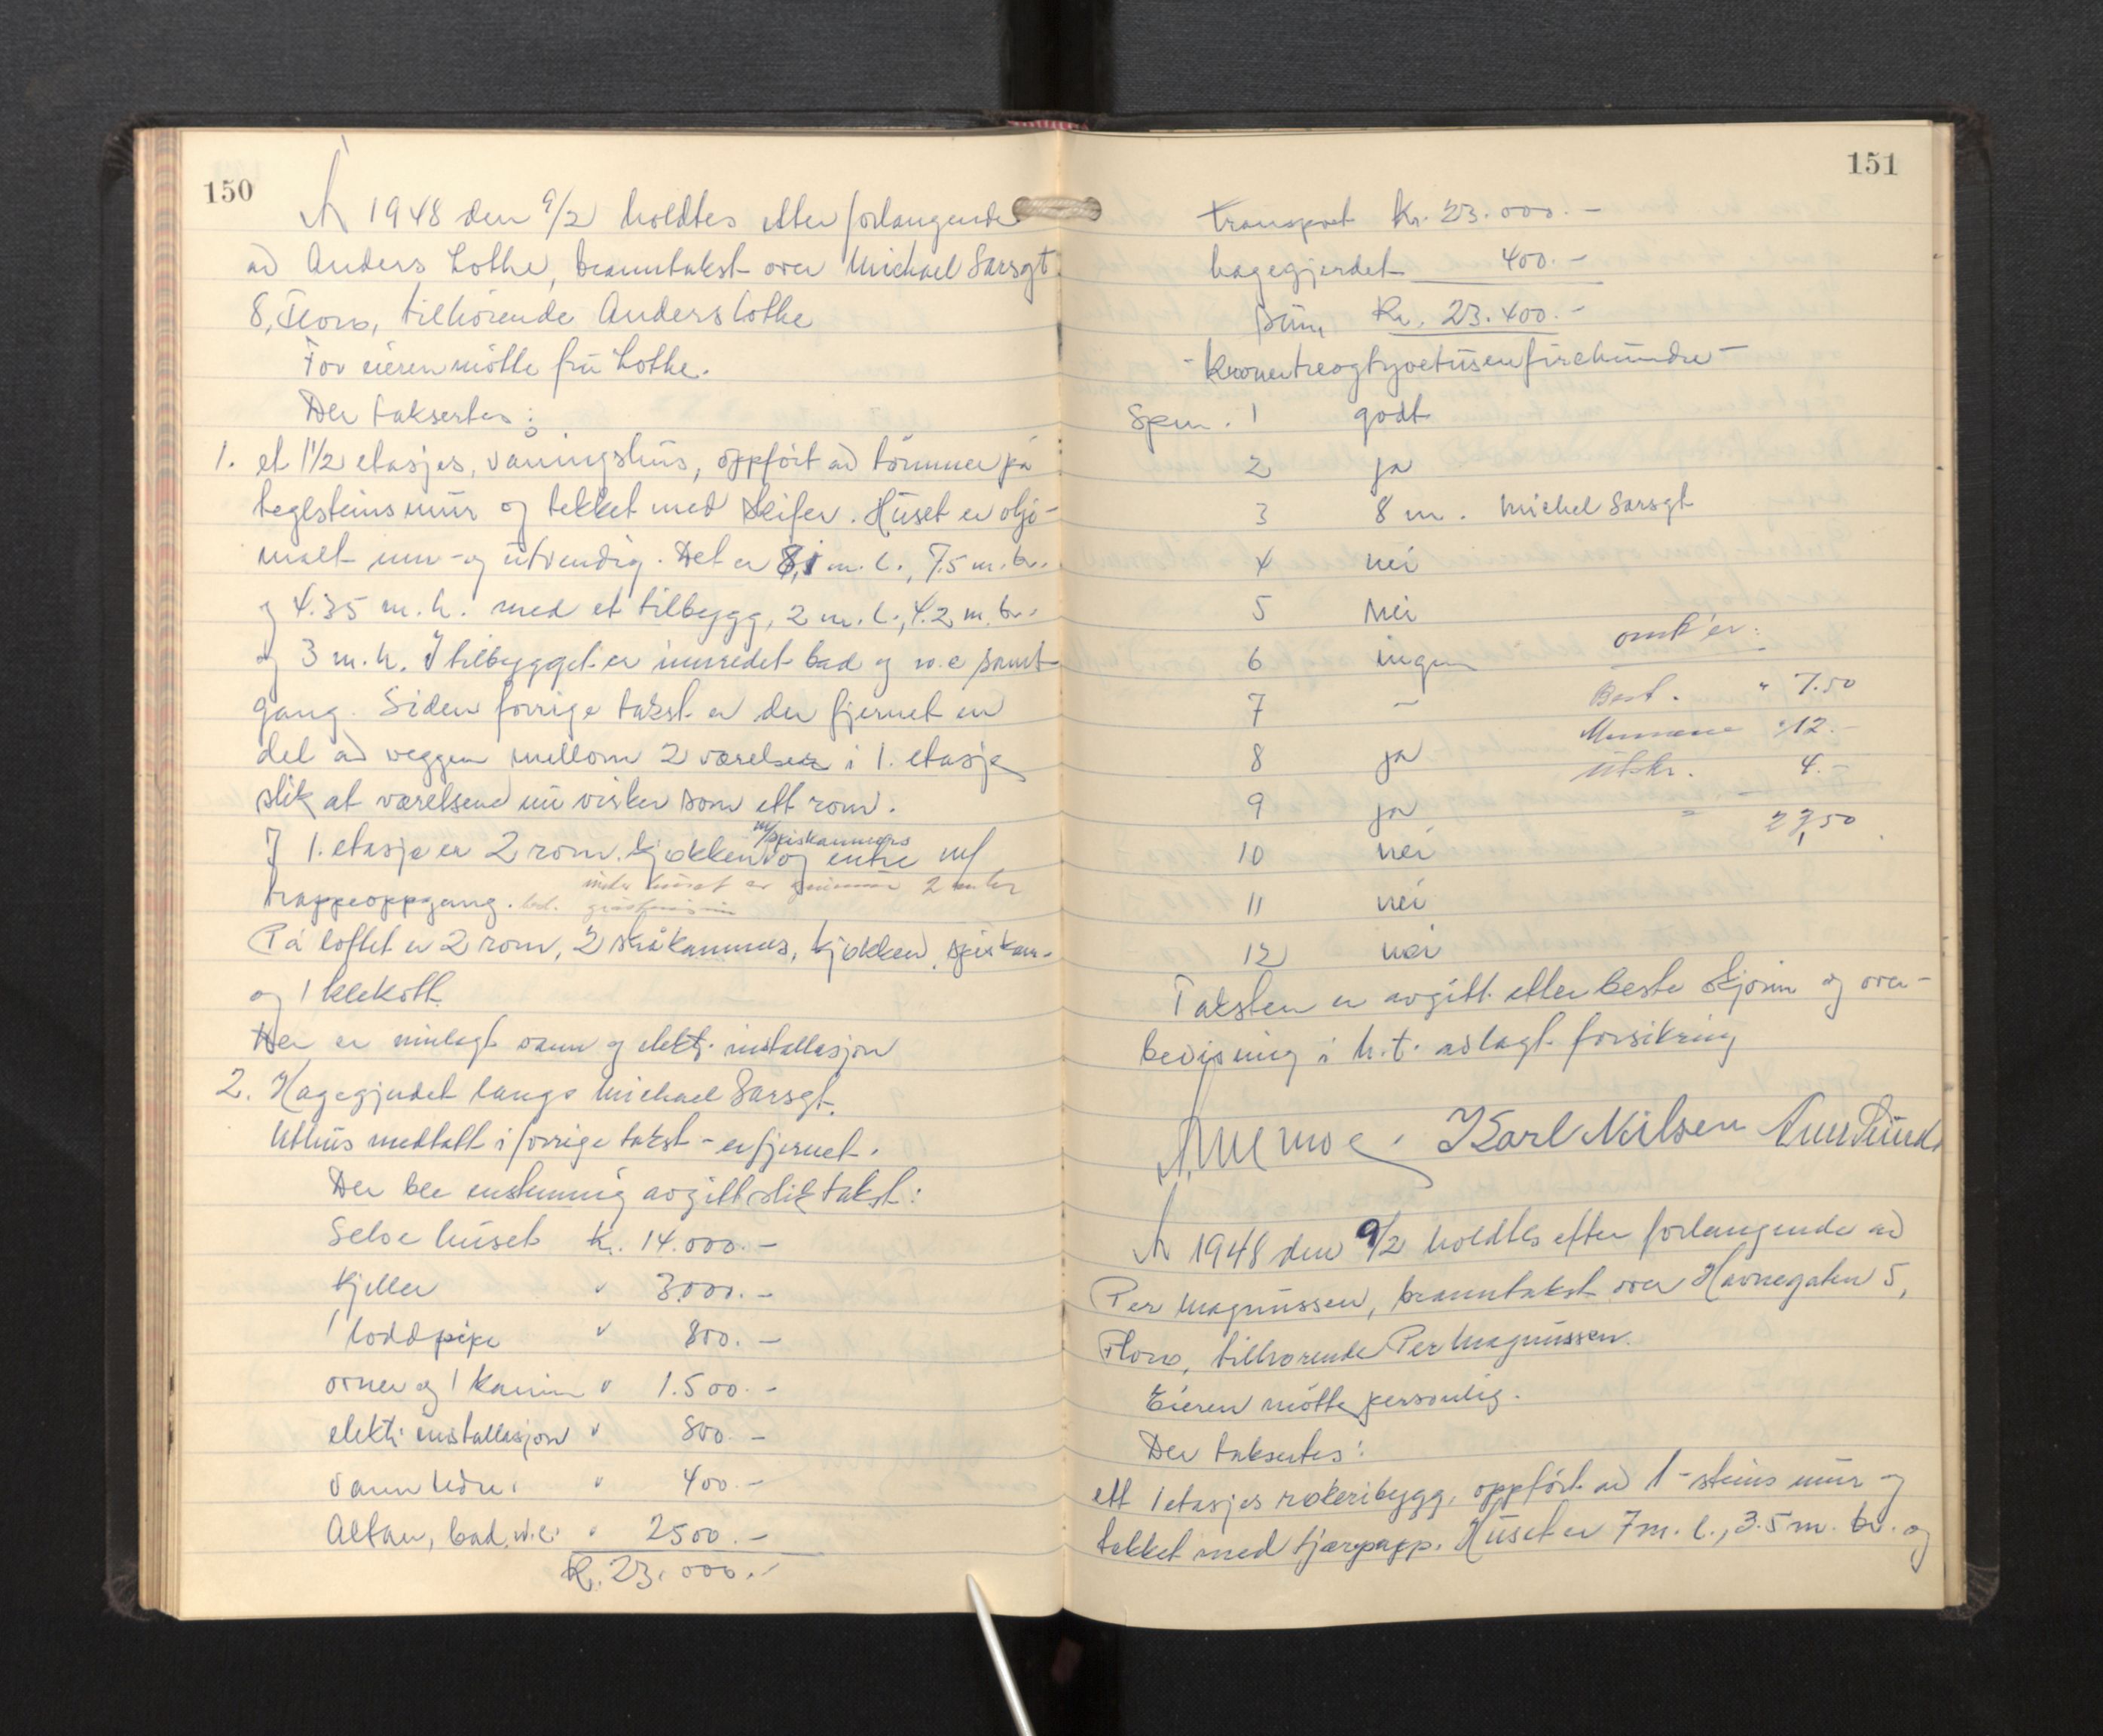 150
År 1948 den 9/2 holdtes etter forlangende
av Anders Lothe, branntakst over Michael Sarsgt
8, Florø, tilhørende Anders Lothe
For eieren møtte fru Lothe.
Der taksertes:
1. et 1 1/2 etasjes, våningshus, oppført av tømmer på
teglsteinsmur og tekket med skifer. Huset er olje-
malt inn- og utvendig. Det er 8,1 m. l., 7.5 m. br.
og 4.35 m. h. med et tilbygg, 2 m. l., 4.2 m. br.
og 3 m. h. I tilbygget er innredet bad og w.c samt
gang. Siden forrige takst er der fjernet en
del av veggen mellom 2 værelser i 1. etasje
slik at værelsene nu virker som ett rom.
m/spiskammers
I 1. etasje er 2 rom, kjøkken og entre m/
under huset er 2 meter
trappeoppgang.
På loftet er 2 rom, 2 skråkammers, kjøkken, spiskam.
og 1 klekott.
Der er innlagt vann og elektr. installasjon
2. Hagegjerdet langs Michael Sarsgt.
Uthus medtatt i forrige takst - er fjernet.
Der ble enstemmig avgitt slik takst:
Selve huset kr. 14.000.-
Kjeller " 3000.-
1 loddpipe " 800.-
ovner og 1 kamin " 1.500.-
elektr. installasjon " 800.-
Vannledn. " 400.-
Altan, bad, w.c. " 2500.-
Kr. 23.000.-
151
transport Kr. 23.000.-
hagegjerdet 400.-
sum Kr. 23.400.-
- kronertreogtyvetusenfirehundre -
Spm. 1 godt
2 ja
3 8 m. Michel Sarsgt
4 nei
5 nei
omk'er:
6 ingen
Best. " 7.50
7 -
Mennene " 12.-
8 ja
utskr. 4.-
9 ja
23,50
10 nei
11 nei
12 nei
Taksten er avgitt etter beste skjønn og over-
bevisning i h.t. avlagt forsikring
Karl Nilsen
År 1948 den 9/2 holdtes efter forlangende av
Per Magnussen, branntakst over Havnegaten 5,
Florø, tilhørende Per Magnussen.
Eieren møtte personlig.
Der taksertes:
ett 1 etasjes røkeribygg, oppført av 1-steins mur og
tekket med tjærepapp. Huset er 7 m. l., 3.5 m. br. og